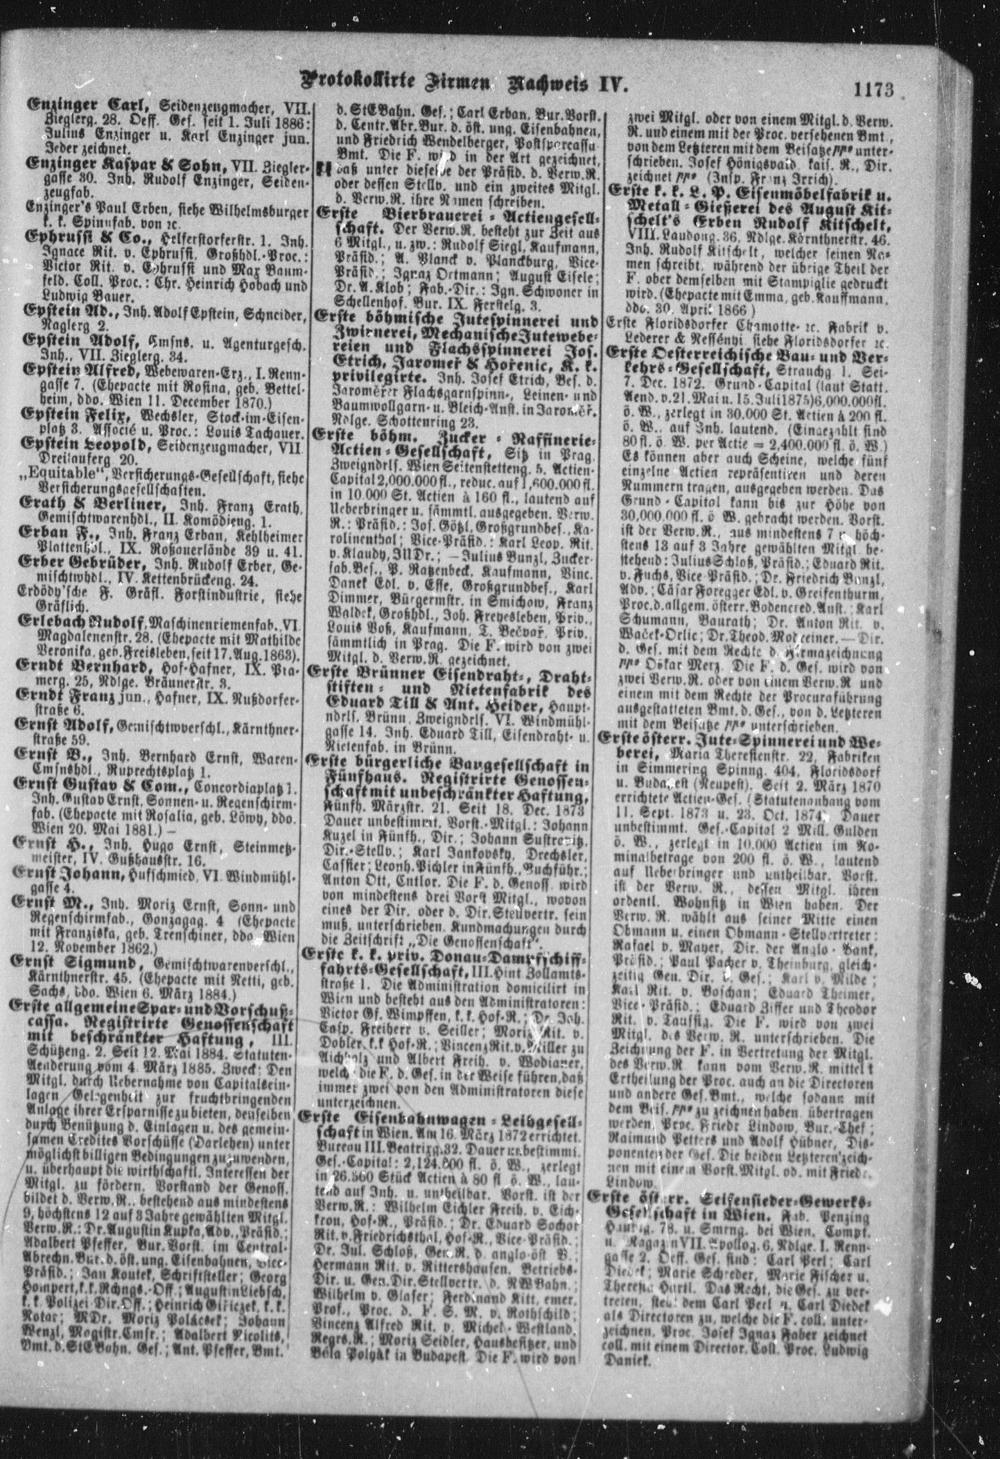 Protokollirte Firmen Nachweis IV.
1173
Enzinger Carl, Seidenzeugmacher, VII.
Zieglerg. 28. Oeff. Ges. seit 1. Juli 1886:
Julius Enzinger u. Karl Enzinger jun.
Jeder zeichnet.
Enzinger Kaspar & Sohn, VII. Ziegler-
gasse 30. Inh. Rudolf Enzinger, Seiden-
zeugfab.
Enzinger's Paul Erben, siehe Wilhelmsburger
k. k. Spinnfab. von ꝛc.
Ephrussi & Co., Helferstorferstr. 1. Inh.
Ignace Rit. v. Ephrussi, Großhdl. Proc.:
Victor Rit. v. Ephrussi und Max Baum-
feld. Coll. Proc.: Chr. Heinrich Hobach und
Ludwig Bauer.
Epstein Ad., Inh. Adolf Epstein, Schneider,
Naglerg 2.
Epstein Adolf, Cmsns. u. Agenturgesch.
Inh., VII. Zieglerg. 34.
Epstein Alfred, Webewaren-Erz., I. Renn-
gasse 7. (Ehepacte mit Rosina, geb. Bettel-
heim, ddo. Wien 11. December 1870.)
Epstein Felix, Wechsler, Stock-im-Eisen-
platz 3. Associé u. Proc.: Louis Tachauer.
Epstein Leopold, Seidenzeugmacher, VII
Dreilauferg 20.
„Equitable", Versicherungs-Gesellschaft, siehe
Versicherungsgesellschaften.
Erath & Berliner, Inh. Franz Erath,
Gemischtwarenhdl., II. Komödieng. 1.
Erban F., Inh. Franz Erban, Kehlheimer
Plattenhdl., IX. Roßauerlände 39 u. 41.
Erber Gebrüder, Inh. Rudolf Erber, Ge-
mischtwhdl., IV. Kettenbrückeng. 24.
Erdödy'sche F. Gräfl. Forstindustrie, siehe
Gräflich.
Erlebach Rudolf, Maschinenriemenfab. VI.
Magdalenenstr. 28. (Ehepacte mit Mathilde
Veronika, geb. Freisleben, seit 17. Aug. 1863).
Erndt Bernhard, Hof-Hafner, IX. Pra-
merg. 25, Ndlge. Bräunerstr. 3.
Erndt Franz jun., Hafner, IX. Nußdorfer-
straße 6.
Ernst Adolf, Gemischtwverschl., Kärnthner-
straße 59.
Ernst B., Inh. Bernhard Ernst, Waren-
Cmsnshdl., Ruprechtsplatz 1.
Ernst Gustav & Com., Concordiaplatz 1.
Inh. Gustav Ernst, Sonnen- u. Regenschirm-
fab. (Ehepacte mit Rosalia, geb. Löwy, ddo.
Wien 20. Mai 1881.) —
Ernst H., Inh. Hugo Ernst, Steinmetz-
meister, IV. Gußhausstr. 16.
Ernst Johann, Hufschmied, VI. Windmühl-
gasse 4.
Ernst M., Inh. Moriz Ernst, Sonn- und
Regenschirmfab., Gonzagag. 4 (Ehepacte
mit Franziska, geb. Trenschiner, ddo Wien
12. November 1862.)
Ernst Sigmund, Gemischtwarenverschl.,
Kärnthnerstr. 45. (Ehepacte mit Netti, geb.
Sachs, ddo. Wien 6. März 1884.)
Erste allgemeine Spar- und Vorschuß-
cassa. Registrirte Genossenschaft
mit beschränkter Haftung, III.
Schützeng. 2. Seit 12. Mai 1884. Statuten-
Aenderung vom 4. März 1885. Zweck: Den
Mitgl. durch Uebernahme von Capitalsein-
lagen Gelegenheit zur fruchtbringenden
Anlage ihrer Ersparnisse zu bieten, denselben
durch Benützung d. Einlagen u. des gemein-
samen Credites Vorschüsse (Darlehen) unter
möglichst billigen Bedingungen zuzuwenden,
u. überhaupt die wirthschaftl. Interessen der
Mitgl. zu fördern. Vorstand der Genoss.
bildet d. Verw.R., bestehend aus mindestens
9, höchstens 12 auf 3 Jahre gewählten Mitgl.
Verw.R.: Dr. Augustin Kupka, Adv., Präsid.;
Adalbert Pfeffer, Bur. Vorst. im Central-
Abrechn. Bur. d. öst. ung. Eisenbahnen, Vice-
Präsid.; Jan Koutek, Schriftsteller; Georg
Hompert, k. k. Rchngs.-Off.; Augustin Liebsch,
k. k. Polizei-Dir. Off.; Heinrich Giřiczek, k. k.
Notar; MDr. Moriz Polácsek; Johann
Wenzl, Magistr. Cmsr.; Adalbert Nicolits,
Bmt. d. StEBahn. Ges.; Ant. Pfeffer, Bmt.
d. StEBahn. Ges.; Carl Erban, Bur. Vorst.
d. Centr. Abr. Bur. d. öst. ung. Eisenbahnen,
und Friedrich Wendelberger, Postsparcassa-
Bmt. Die F. wird in der Art gezeichnet,
daß unter dieselbe der Präsid. d. Verw.R.
oder dessen Stellv. und ein zweites Mitgl.
d. Verw.R. ihre Namen schreiben.
Erste Bierbrauerei-Actiengesell-
schaft. Der Verw.R. besteht zur Zeit aus
6 Mitgl., u. zw.: Rudolf Siegl, Kaufmann,
Präsid.; A. Planck v. Planckburg, Vice-
Präsid.; Ignaz Ortmann; August Eisele;
Dr. A. Klob; Fab.-Dir.: Ign. Schwoner in
Schellenhof. Bur. IX. Ferstelg. 3.
Erste böhmische Jutespinnerei und
Zwirnerei, Mechanische Jutewebe-
reien und Flachsspinnerei Jos.
Etrich, Jaroměř & Hořenic, K. k.
privilegirte. Inh. Josef Etrich, Bes. d.
Jaroměřer Flachsgarnspinn-, Leinen- und
Baumwollgarn- u. Bleich-Anst. in Jaroměř.
Ndlge. Schottenring 23.
Erste böhm. Zucker-Raffinerie-
Actien-Gesellschaft, Sitz in Prag.
Zweigndrls. Wien Seitenstetteng. 5. Actien-
Capital 2,000.000 fl., reduc. auf 1,600.000 fl.
in 10.000 St. Actien à 160 fl., lautend auf
Ueberbringer u. sämmtl. ausgegeben. Verw.
R.: Präsid.: Jos. Götzl, Großgrundbes., Ka-
rolinenthal; Vice-Präsid.: Karl Leop. Rit.
v. Klaudy, JUDr.; — Julius Bunzl, Zucker-
fab. Bes., P. Ratzenbeck, Kaufmann, Vinc.
Danek Edl. v. Esse, Großgrundbes., Karl
Dimmer, Bürgermstr. in Smichow, Franz
Waldek, Großhdl., Joh. Freyesleben, Priv.,
Louis Voß, Kaufmann, T. Bečvař, Priv.,
sämmtlich in Prag. Die F. wird von zwei
Mitgl. d. Verw.R. gezeichnet.
Erste Brünner Eisendraht-, Draht-
stiften- und Nietenfabrik des
Eduard Till & Ant. Heider, Haupt-
ndrls. Brünn. Zweigndrls. VI. Windmühl-
gasse 14. Inh. Eduard Till, Eisendraht- u.
Nietenfab. in Brünn.
Erste bürgerliche Baugesellschaft in
Fünfhaus. Registrirte Genossen-
schaft mit unbeschränkter Haftung,
Fünfh. Märzstr. 21. Seit 18. Dec. 1873
Dauer unbestimmt. Vorst.-Mitgl.: Johann
Kuzel in Fünfh., Dir.; Johann
Dir.-Stellv.; Karl Jankovsky, Drechsler,
Cassier; Leonh. Pichler in Fünfh., Buchführ.;
Anton Ott, Cntlor. Die F. d. Genoss. wird
von mindestens drei Vorst Mitgl., wovon
eines der Dir. oder d. Dir. Stellvertr. sein
muß, unterschrieben. Kundmachungen durch
die Zeitschrift „Die Genossenschaft".
Erste k. k. priv. Donau-Dampfschiff-
fahrts-Gesellschaft, III. Hint. Zollamts-
straße 1. Die Administration domicilirt in
Wien und besteht aus den Administratoren:
Victor Gf. Wimpffen, k. k. Hof-R.; Dr. Joh.
Casp. Freiherr v. Seiller; Moriz Rit. v.
Dobler, k. k. Hof-R.; Vincenz Rit. v. Miller zu
Aichholz und Albert Freih. v. Wodianer,
welche die F. d. Ges. in der Weise führen, daß
immer zwei von den Administratoren diese
unterzeichnen.
Erste Eisenbahnwagen-Leihgesell-
schaft in Wien. Am 16. März 1872 errichtet.
Bureau III. Beatrixg. 32. Dauer unbestimmt.
Ges.-Capital: 2,124.800 fl. ö. W., zerlegt
in 26.560 Stück Actien à 80 fl. ö. W., lau-
tend auf Inh. u. untheilbar. Vorst. ist der
Verw.R.: Wilhelm Eichler Freih. v. Eich-
kron, Hof-R., Präsid.; Dr. Eduard Sochor
Rit. v. Friedrichsthal, Hof-R., Vice-Präsid.;
Dr. Jul. Schloß, Gen.R. d. anglo-öst. B.;
Hermann Rit. v. Rittershausen, Betriebs-
Dir. u. Gen. Dir. Stellvertr. d. NWBahn.;
Wilhelm v. Glaser; Ferdinand Kitt, emer.
Prof., Proc. d. F. S. M. v. Rothschild;
Vincenz Alfred Rit. v. Michel-Westland,
Regrs.R.; Moriz Seidler, Hausbesitzer, und
Béla Polyák in Budapest. Die F. wird von
zwei Mitgl. oder von einem Mitgl. d. Verw.
R. und einem mit der Proc. versehenen Bmt.,
von dem Letzteren mit dem Beisatze ppa unter-
schrieben. Josef Königswald, kais. R., Dir.
zeichnet ppa (Insp. Franz Irrich).
Erste k. k. L. P. Eisenmöbelfabrik u.
Metall-Gießerei des August Kit-
schelt's Erben Rudolf Kitschelt,
VIII. Laudong. 36, Ndlge. Kärnthnerstr. 46.
Inh. Rudolf Kitschelt, welcher seinen Na-
men schreibt, während der übrige Theil der
F. ober demselben mit Stampiglie gedruckt
wird. (Ehepacte mit Emma, geb. Kauffmann,
ddo. 30. April 1866)
Erste Floridsdorfer Chamotte- ꝛc. Fabrik v.
Lederer & Nessényi, siehe Floridsdorfer ꝛc.
Erste Oesterreichische Bau- und Ver-
kehrs-Gesellschaft, Strauchg 1. Sei-
7. Dec. 1872. Grund-Capital (laut Statt.
Aend. v. 21. Mai u. 15. Juli 1875) 6,000.000 fl.
ö. W., zerlegt in 30.000 St. Actien à 200 fl.
ö. W., auf Inh. lautend. (Eingezahlt sind
80 fl. ö. W. per Actie = 2,400.000 fl. ö. W.)
Es können aber auch Scheine, welche fünf
einzelne Actien repräsentiren und deren
Nummern tragen, ausgegeben werden. Das
Grund-Capital kann bis zur Höhe von
30,000.000 fl. ö W. gebracht werden. Vorst.
ist der Verw.R., aus mindestens 7 u. höch-
stens 13 auf 3 Jahre gewählten Mitgl. be-
stehend: Julius Schloß, Präsid.; Eduard Rit.
v. Fuchs, Vice-Präsid.; Dr. Friedrich Bunzl,
Adv.; Cäsar Foregger Edl. v. Greifenthurm,
Proc. d. allgem. österr. Bodencred. Anst.; Karl
Schumann, Baurath; Dr. Anton Rit. v.
Waček-Orlic; Dr. Theod. — Dir.
d. Ges. mit dem Rechte d. Firmazeichnung
ppa Oskar Merz. Die F. d. Ges. wird von
zwei Verw.R. oder von einem Verw.R und
einem mit dem Rechte der Procuraführung
ausgestatteten Bmt. d. Ges., von d. Letzteren
mit dem Beisatze ppa unterschrieben.
Erste österr. Jute-Spinnerei und We-
berei, Maria Theresienstr. 22, Fabriken
in Simmering Spinng. 404, Floridsdorf
u. Budapest (Neupest). Seit 2. März 1870
errichtete Actien-Ges. (Statutenänderung vom
11. Sept. 1873 u. 23. Oct. 1874. Dauer
unbestimmt. Ges.-Capital 2 Mill. Gulden
ö. W., zerlegt in 10.000 Actien im No-
minalbetrage von 200 fl. ö. W., lautend
auf Ueberbringer und untheilbar. Vorst.
ist der Verw. R., dessen Mitgl. ihren
ordentl. Wohnsitz in Wien haben. Der
Verw. R. wählt aus seiner Mitte einen
Obmann u. einen Obmann-Stellvertreter:
Rafael v. Mayer, Dir. der Anglo-Bank,
Präsid.; Paul Pacher v. Theinburg, gleich-
zeitig Gen. Dir. d Ges.; Karl v. Milde;
Karl Rit. v. Boschan; Eduard Theimer,
Vice-Präsid.; Eduard Ziffer und Theodor
Rit. v. Taussig. Die F. wird von zwei
Mitgl. des Verw. R. unterschrieben. Die
Zeichnung der F. in Vertretung der Mitgl.
des Verw.R. kann vom Verw.R. mittelst
Ertheilung der Proc. auch an die Directoren
und andere Ges. Bmt., welche sodann mit
dem Beis. ppa zu zeichnen haben, übertragen
werden. Proc. Friedr. Lindow, Bur.-Chef;
Raimund Petters und Adolf Hübner, Dis-
ponenten der Ges. Die beiden Letzteren zeich-
nen mit einem Vorst. Mitgl. od. mit Friedr.
Lindow.
Erste österr. Seifensieder-Gewerks-
Gesellschaft in Wien. Fab. Penzing
Hauptg. 78. u. Smrng. bei Wien, Compt.
u. Magazin VII. Apollog. 6, Ndlge. I. Renn-
gasse 2. Oeff. Ges. sind: Carl Perl; Carl
Diedek; Marie Schreder, Marie Fischer u.
Theresia Hartl. Das Recht, die Ges. zu ver-
treten, steht dem Carl Perl u. Carl Diedek
als Directoren zu, welche die F. coll. unter-
zeichnen. Proc. Josef Ignaz Faber zeichnet
coll. mit einem Director. Coll. Proc. Ludwig
Daniek.